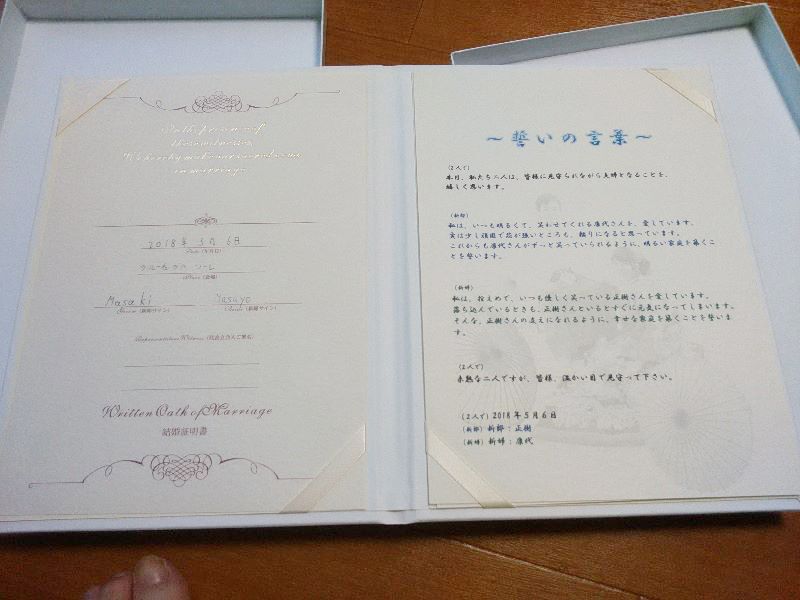 In the presence of
these witnesses,
We hereby make our vows
in marriage.
2018年 5月 6日
Date (年月日)
Place (会場)
Masaki
Yasuyo
Groom (新郎サイン)
Bride (新婦サイン)
Representative Witness (代表立会人ご署名)
Written Oath of Marriage
結婚証明書
～誓いの言葉～
(2人で)
本日、私たち二人は、皆様に見守られながら夫婦となることを、
嬉しく思います。
(新郎)
私は、いつも明るくて、笑わせてくれる康代さんを、愛しています。
実は少し頑固で芯が強いところも、頼りになると思っています。
これからも康代さんがずっと笑っていられるように、明るい家庭を築くこ
とを誓います。
(新婦)
私は、控えめで、いつも優しく笑っている正樹さんを愛しています。
落ち込んでいるときも、正樹さんといるとすぐに元気になってしまいます。
そんな、正樹さんの支えになれるように、幸せな家庭を築くことを誓いま
す。
(2人で)
未熟な二人ですが、皆様、温かい目で見守って下さい。
(2人で) 2018年5月6日
(新郎) 新郎：正樹
(新婦) 新婦：康代